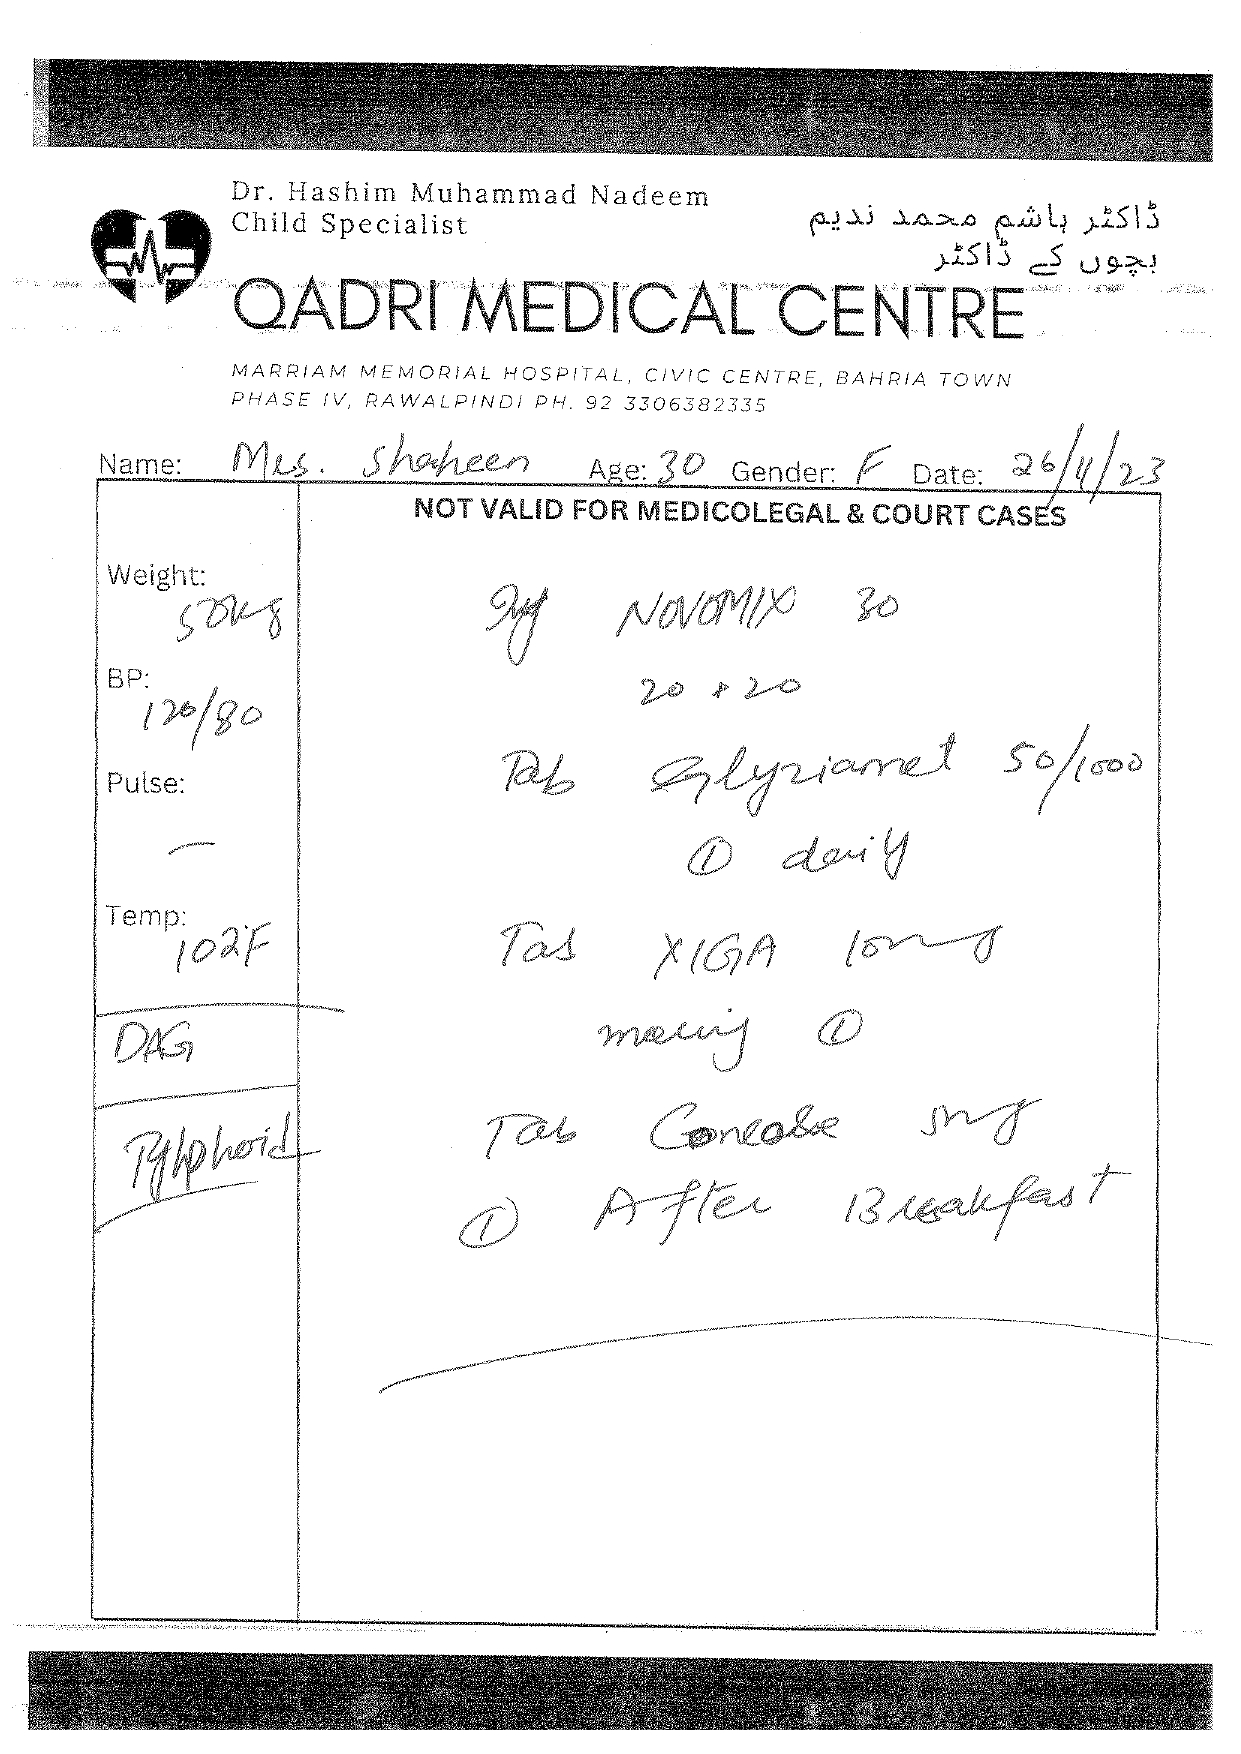 Dr. Hashim Muhammad Nadeem
Child Specialist
ڈاکٹر ہاشم محمد ندیم
بچوں کے ڈاکٹر
QADRI MEDICAL CENTRE
MARRIAM MEMORIAL HOSPITAL, CIVIC CENTRE, BAHRIA TOWN
PHASE IV, RAWALPINDI PH. 92 3306382335
Name: Mrs. Shaheen Age: 30 Gender: F Date: 26/4/23
NOT VALID FOR MEDICOLEGAL & COURT CASES
Weight:
50kg
BP:
120/80
Pulse:
—
Temp:
102F
DAG
Inj NOVOMIX 30
20 + 20
Tab 50/1000
① daily
Tab XIGA 10mg
morning ①
Tab 5mg
① After Breakfast